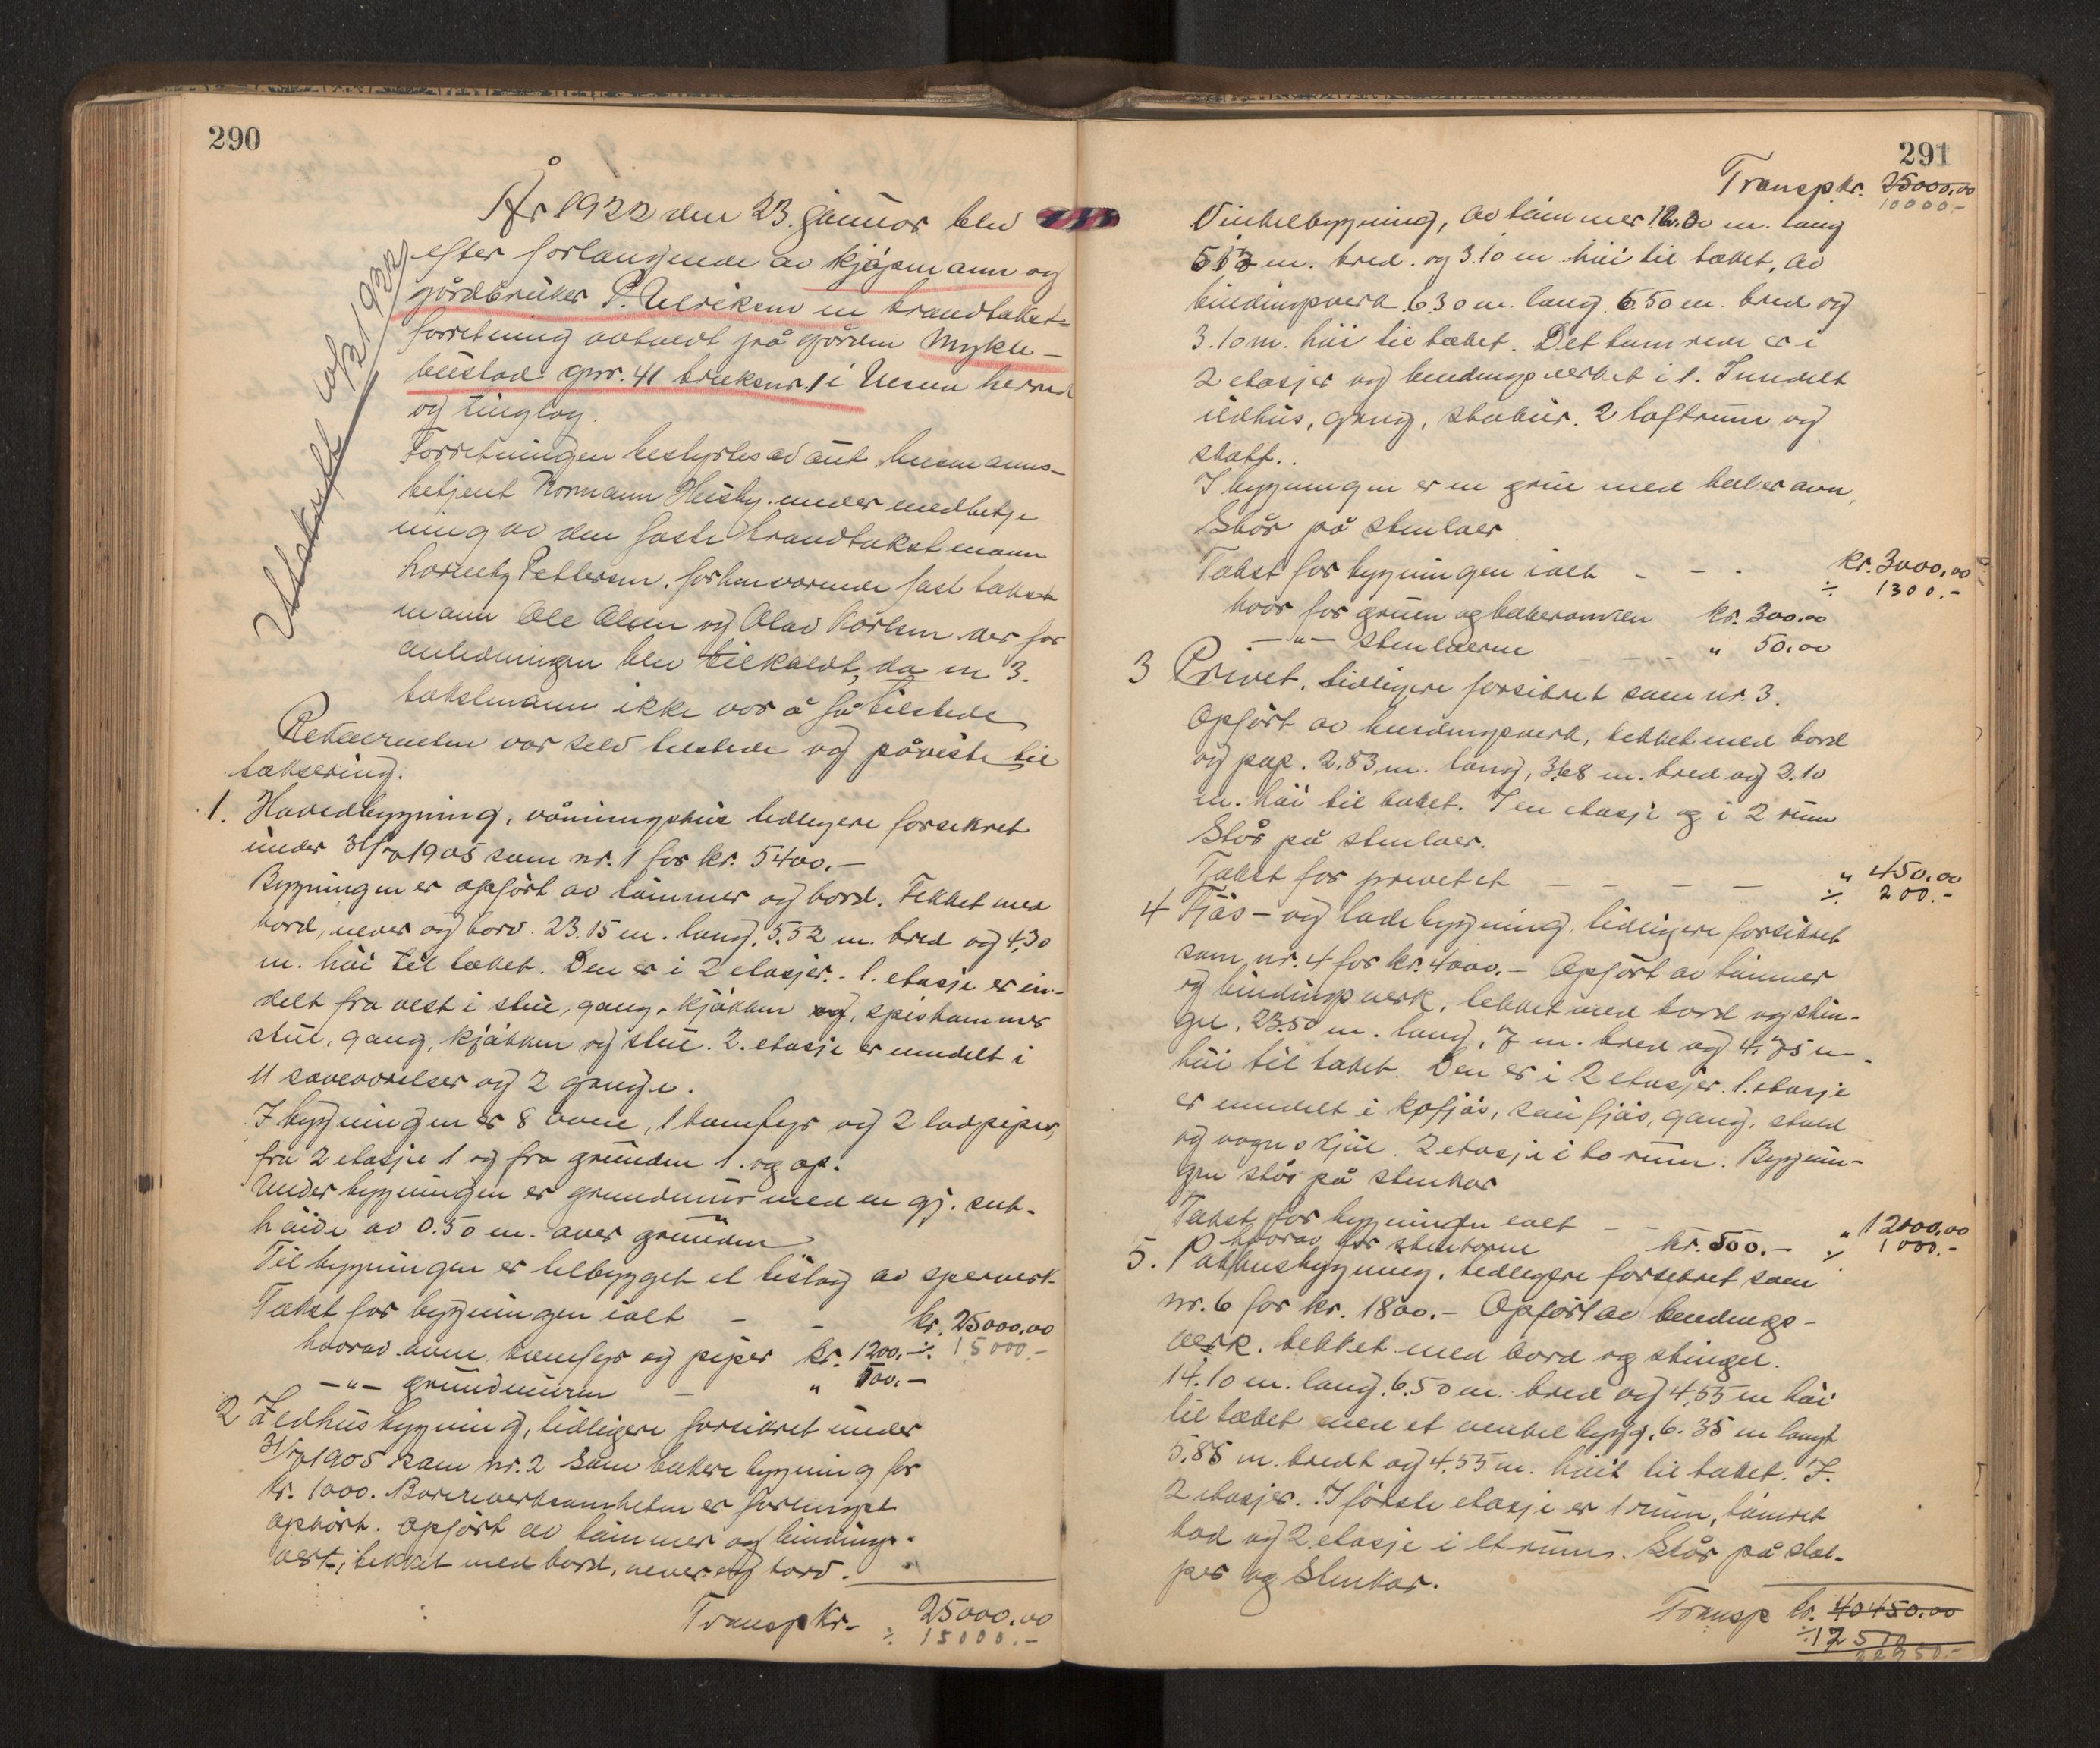 290
År 1922 den 23. januar blev
efter forlangende av kjøpmann og
gårdbruker P. Ulriksen en brandtakst-
forretning avholdt på gården Mykle-
bustad gnr. 41 bruksnr. 1 i Nesna herred
og tinglag.
Forretningen bestyrtes av aut. lensmanns-
betjent Normann Husby under medbetje
ning av den faste brandtakstmann
Hornely Pettersen, forhenværende fast takst
mann Ole Olsen og Olav Karlsen der for
anledningen blev tilkaldt, da en 3.
takstmann ikke var å få tilstede
Rekvirenten var selv tilstede og påviste til
taksering.
1. Hovedbygning, våningshus tidligere forsikret
under 31/7 1905 som nr. 1 for kr. 5400.-
Bygningen er opført av tømmer og bord. Tekket med
bord, never og torv. 23.15 m. lang, 5.52 m. bred og 4,30
m. høi til taket. Den er i 2 etasjer. 1. etasje er in-
delt fra vest i stue, gang, kjøkken og, spiskammer
stue, gang, kjøkken og stue. 2. etasje er inndelt i
11 soveværelser og 2 gange.
I bygningen er 8 ovne, 1 komfyr og 2 lodpiper,
fra 2 etasje 1 og fra grunden 1. og op.
Under bygningen er grundmur med en gj. snit-
høide av 0.50 m. over grunden
Til bygningen er tilbygget et bislag av sperverk.
Takst for bygningen ialt - - kr. 25000,00
hvorav ovne, komfyr og piper kr. 1200.- ÷ 15000.-
-"- grundmuren - " 500.-
2 Ildhusbygning, tidligere forsikret under
31/7 1905 som nr. 2 som bakeri bygning for
kr. 1000. Bakerivirksomheten er forlengst
ophørt. Opført av tømmer og bindings-
verk, tekket med bord, never og torv.
Transp kr. 25000,00
÷ 15000.-
Uttaksskrift 10/2 1922
291
Transp kr. 25000,00
10000.-
Vinkelbygning, av tømmer 12.00 m. lang
5.13 m. bred. og 3.10 m høi til taket, av
bindingsverk 6.30 m. lang 6.50 m. bred og
3.10 m. høi til taket. Det tømrede er i
2 etasjer og bindingsverket i 1. Inndelt
ildhus, gang, stabur. 2 loftrum og
skott.
I bygningen er en grue med bakerovn,
Står på stenlaer.
Takst for bygningen ialt - - - kr. 3000,00
÷ 1300.-
hvor for gruen og bakerovnen kr. 300.00
-"- stenlaerne - - - " 50.00
3 Privet, tidligere forsikret som nr. 3.
Opført av bindingsverk, tekket med bord
og pap. 2.83 m. lang, 3,68 m. bred og 2.10
m. høi til taket. I en etasje og i 2 rum
Står på stenlaer.
Takst for privetet - - - - " 450.00
÷ 200.-
4 Fjøs- og ladebygning, tidligere forsikret
som nr. 4 for kr. 4000.- Opført av tømmer
og bindingsverk, tekket med bord og stin-
gel, 23.50 m. lang, 7 m. bred og 4.75 m.
høi til taket. Den er i 2 etasjer. 1. etasje
er inndelt i kofjøs, saufjøs, gang, stald
og vognskjul. 2 etasje i to rum. Bygnin-
gen står på stenkar
Takst for bygningen ialt - - " 12000,00
hvorav for stenkarene kr. 500.- ÷ 1000.-
5. Pakhusbygning, tidligere forsikret som
nr. 6 for kr. 1800.- Opført av bindings-
verk, tekket med bord og stingel.
14.10 m. lang, 6.50 m. bred og 4,55 m høi
til taket med et vinkelbygg, 6.35 m langt
5.85 m. bredt og 4.55 m. høit til taket. I
2 etasjer. I første etasje er 1 rum, tømret
bod og 2. etasje i et rum. Står på stol-
per og stenkar.
Transp kr. 40450.00
÷ 1750
22950.-